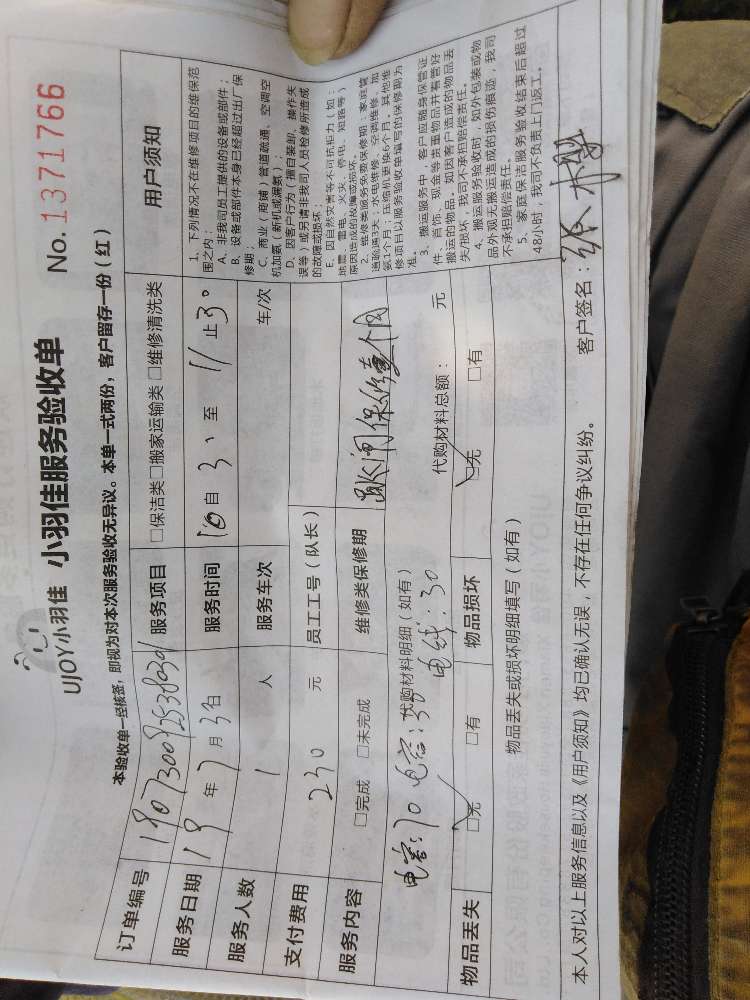 UJOY小羽佳 小羽佳服务验收单 No. 1371766
本验收单一经核签，即视为对本次服务验收无异议。本单一式两份，客户留存一份（红）
订单编号 服务项目 □保洁类□搬家运输类 □维修清洗类
服务日期 19 年 7 月 日 服务时间 自 至 11 止 30
服务人数 1 人 服务车次 车/次
支付费用 230 元 员工工号（队长）
服务内容 □完成 □未完成 维修类保修期 跳闸保修壹个月
代购材料明细（如有） 代购材料总额： 元
电容：70 电容：30 电线：30
物品丢失 □无 □有 物品损坏 □无 □有
物品丢失或损坏明细填写（如有）
用户须知
1、下列情况不在维修项目的维保范
围之内：
A、非我司员工提供的设备或部件；
B、设备或部件本身已经超过出厂保
修期；
C、商业（商铺）管道疏通、空调空
机加氨（新机或漏氨）；
D、因客户行为（擅自装卸、操作失
误等）或另请非我司人员检修所造成
的故障或损坏；
E、因自然灾害等不可抗拒力（如：
地震、雷电、火灾、停电、短路等）
原因造成的故障或损坏。
2、维修类服务免费保修期：家庭管
道疏通3天；水电维修、空调维修、加
氨1个月；压缩机更换6个月，其他维
修项目以服务验收单填写的保修期为
准。
3、搬运服务中，客户应随身保管证
件、首饰、现金等贵重物品并看管好
搬运的物品，如因客户造成的物品丢
失/损坏，我司不承担赔偿责任。
4、搬运服务验收时，如外包装或物
品外观无搬运造成的损伤痕迹，我司
不承担赔偿责任。
5、家庭保洁服务验收结束后超过
48小时，我司不负责上门返工。
本人对以上服务信息以及《用户须知》均已确认无误，不存在任何争议纠纷。 客户签名：